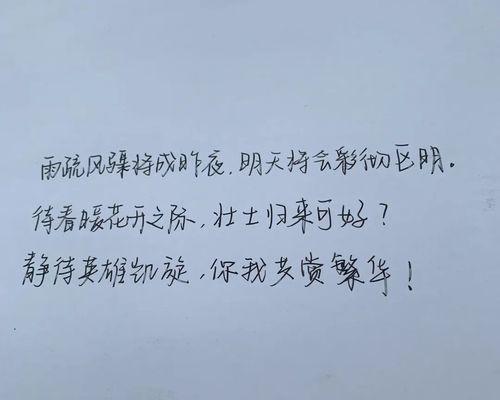 雨疏风骤将成昨夜,明天将会彩彻区明。
待春暖花开之际,壮士归来可好?
静待英雄凯旋,你我共赏繁华!